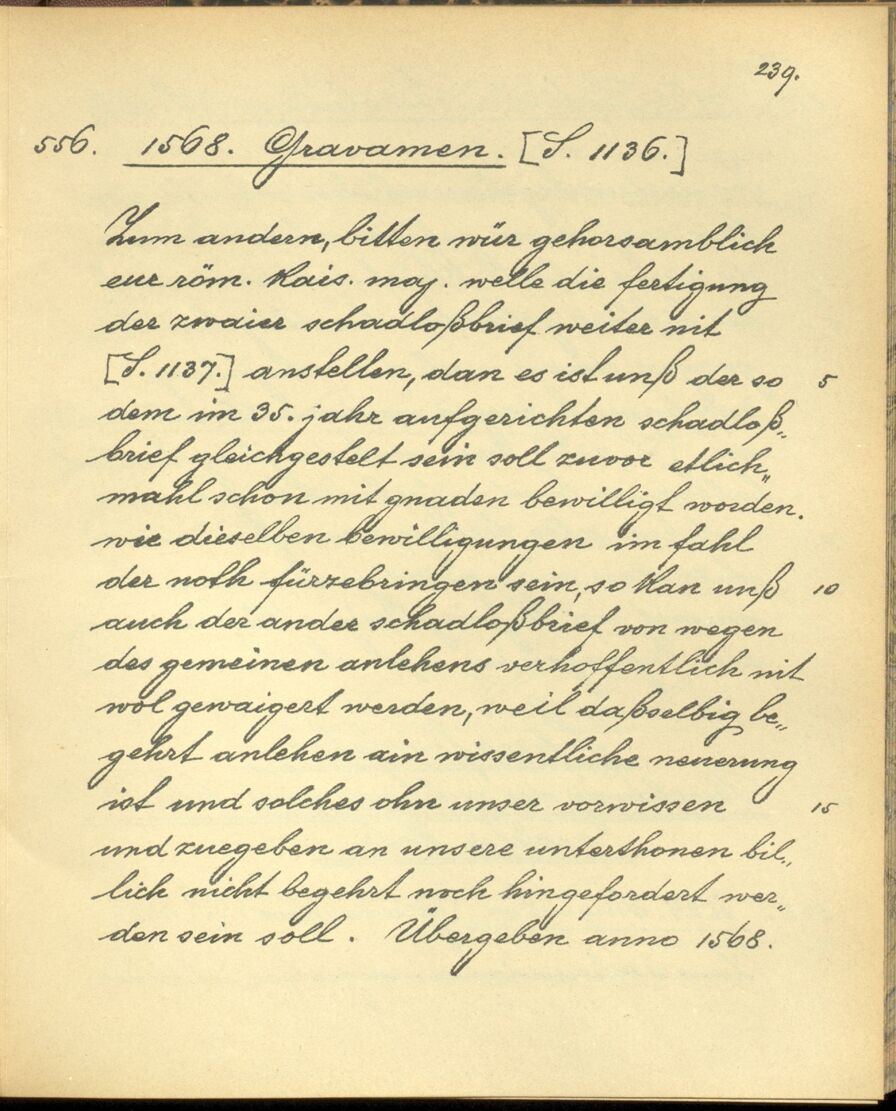 239.
556. 1568. Gravamen. [S. 1136.]
Zum andern, bitten wür gehorsamblich
eur röm. Kais. maj. welle die fertigung
der zwaier schadloßbrief weiter nit
[S. 1137.] anstellen, dan es ist unß der so 5
dem im 35. jahr aufgerichten schadloß„
brief gleichgestelt sein soll zuvor etlich„
mahl schon mit gnaden bewilligt worden.
wie dieselben bewilligungen im fahl
der noth fürzebringen sein, so Kan unß 10
auch der ander schadloßbrief von wegen
des gemeinen anlehens verhoffentlich nit
wol gewaigert werden, weil daßselbig be„
gehrt anlehen ain wissentliche neuerung
ist und solches ohn unser vorwissen 15
und zuegeben an unsere unterthonen bil„
lich nicht begehrt noch hingefordert wer„
den sein soll. Übergeben anno 1568.